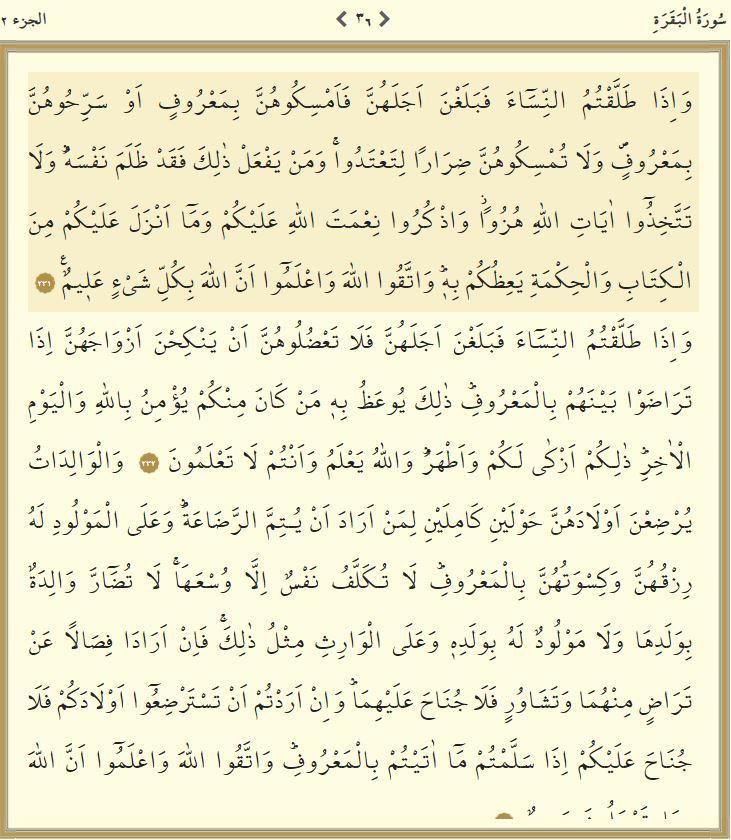 سُورَةُ الْبَقَرَةِ
٣٦
الجزء ٢
وَاِذَا طَلَّقْتُمُ النِّسَٓاءَ فَبَلَغْنَ اَجَلَهُنَّ فَاَمْسِكُوهُنَّ بِمَعْرُوفٍ اَوْ سَرِّحُوهُنَّ
بِمَعْرُوفٍۖ وَلَا تُمْسِكُوهُنَّ ضِرَارًا لِتَعْتَدُواۚ وَمَنْ يَفْعَلْ ذٰلِكَ فَقَدْ ظَلَمَ نَفْسَهُۜ وَلَا
تَتَّخِذُٓوا اٰيَاتِ اللّٰهِ هُزُوًاۘ وَاذْكُرُوا نِعْمَتَ اللّٰهِ عَلَيْكُمْ وَمَٓا اَنْزَلَ عَلَيْكُمْ مِنَ
الْكِتَابِ وَالْحِكْمَةِ يَعِظُكُمْ بِه۪ۜ وَاتَّقُوا اللّٰهَ وَاعْلَمُٓوا اَنَّ اللّٰهَ بِكُلِّ شَيْءٍ عَل۪يمٌ۟ ٢٣١
وَاِذَا طَلَّقْتُمُ النِّسَٓاءَ فَبَلَغْنَ اَجَلَهُنَّ فَلَا تَعْضُلُوهُنَّ اَنْ يَنْكِحْنَ اَزْوَاجَهُنَّ اِذَا
تَرَاضَوْا بَيْنَهُمْ بِالْمَعْرُوفِۜ ذٰلِكَ يُوعَظُ بِه۪ مَنْ كَانَ مِنْكُمْ يُؤْمِنُ بِاللّٰهِ وَالْيَوْمِ
الْاٰخِرِۜ ذٰلِكُمْ اَزْكٰى لَكُمْ وَاَطْهَرُۜ وَاللّٰهُ يَعْلَمُ وَاَنْتُمْ لَا تَعْلَمُونَ ٢٣٢ وَالْوَالِدَاتُ
يُرْضِعْنَ اَوْلَادَهُنَّ حَوْلَيْنِ كَامِلَيْنِ لِمَنْ اَرَادَ اَنْ يُتِمَّ الرَّضَاعَةَۜ وَعَلَى الْمَوْلُودِ لَهُ
رِزْقُهُنَّ وَكِسْوَتُهُنَّ بِالْمَعْرُوفِۜ لَا تُكَلَّفُ نَفْسٌ اِلَّا وُسْعَهَاۚ لَا تُضَٓارَّ وَالِدَةٌ
بِوَلَدِهَا وَلَا مَوْلُودٌ لَهُ بِوَلَدِه۪ وَعَلَى الْوَارِثِ مِثْلُ ذٰلِكَۚ فَاِنْ اَرَادَا فِصَالًا عَنْ
تَرَاضٍ مِنْهُمَا وَتَشَاوُرٍ فَلَا جُنَاحَ عَلَيْهِمَاۜ وَاِنْ اَرَدْتُمْ اَنْ تَسْتَرْضِعُٓوا اَوْلَادَكُمْ فَلَا
جُنَاحَ عَلَيْكُمْ اِذَا سَلَّمْتُمْ مَٓا اٰتَيْتُمْ بِالْمَعْرُوفِۜ وَاتَّقُوا اللّٰهَ وَاعْلَمُٓوا اَنَّ اللّٰهَ